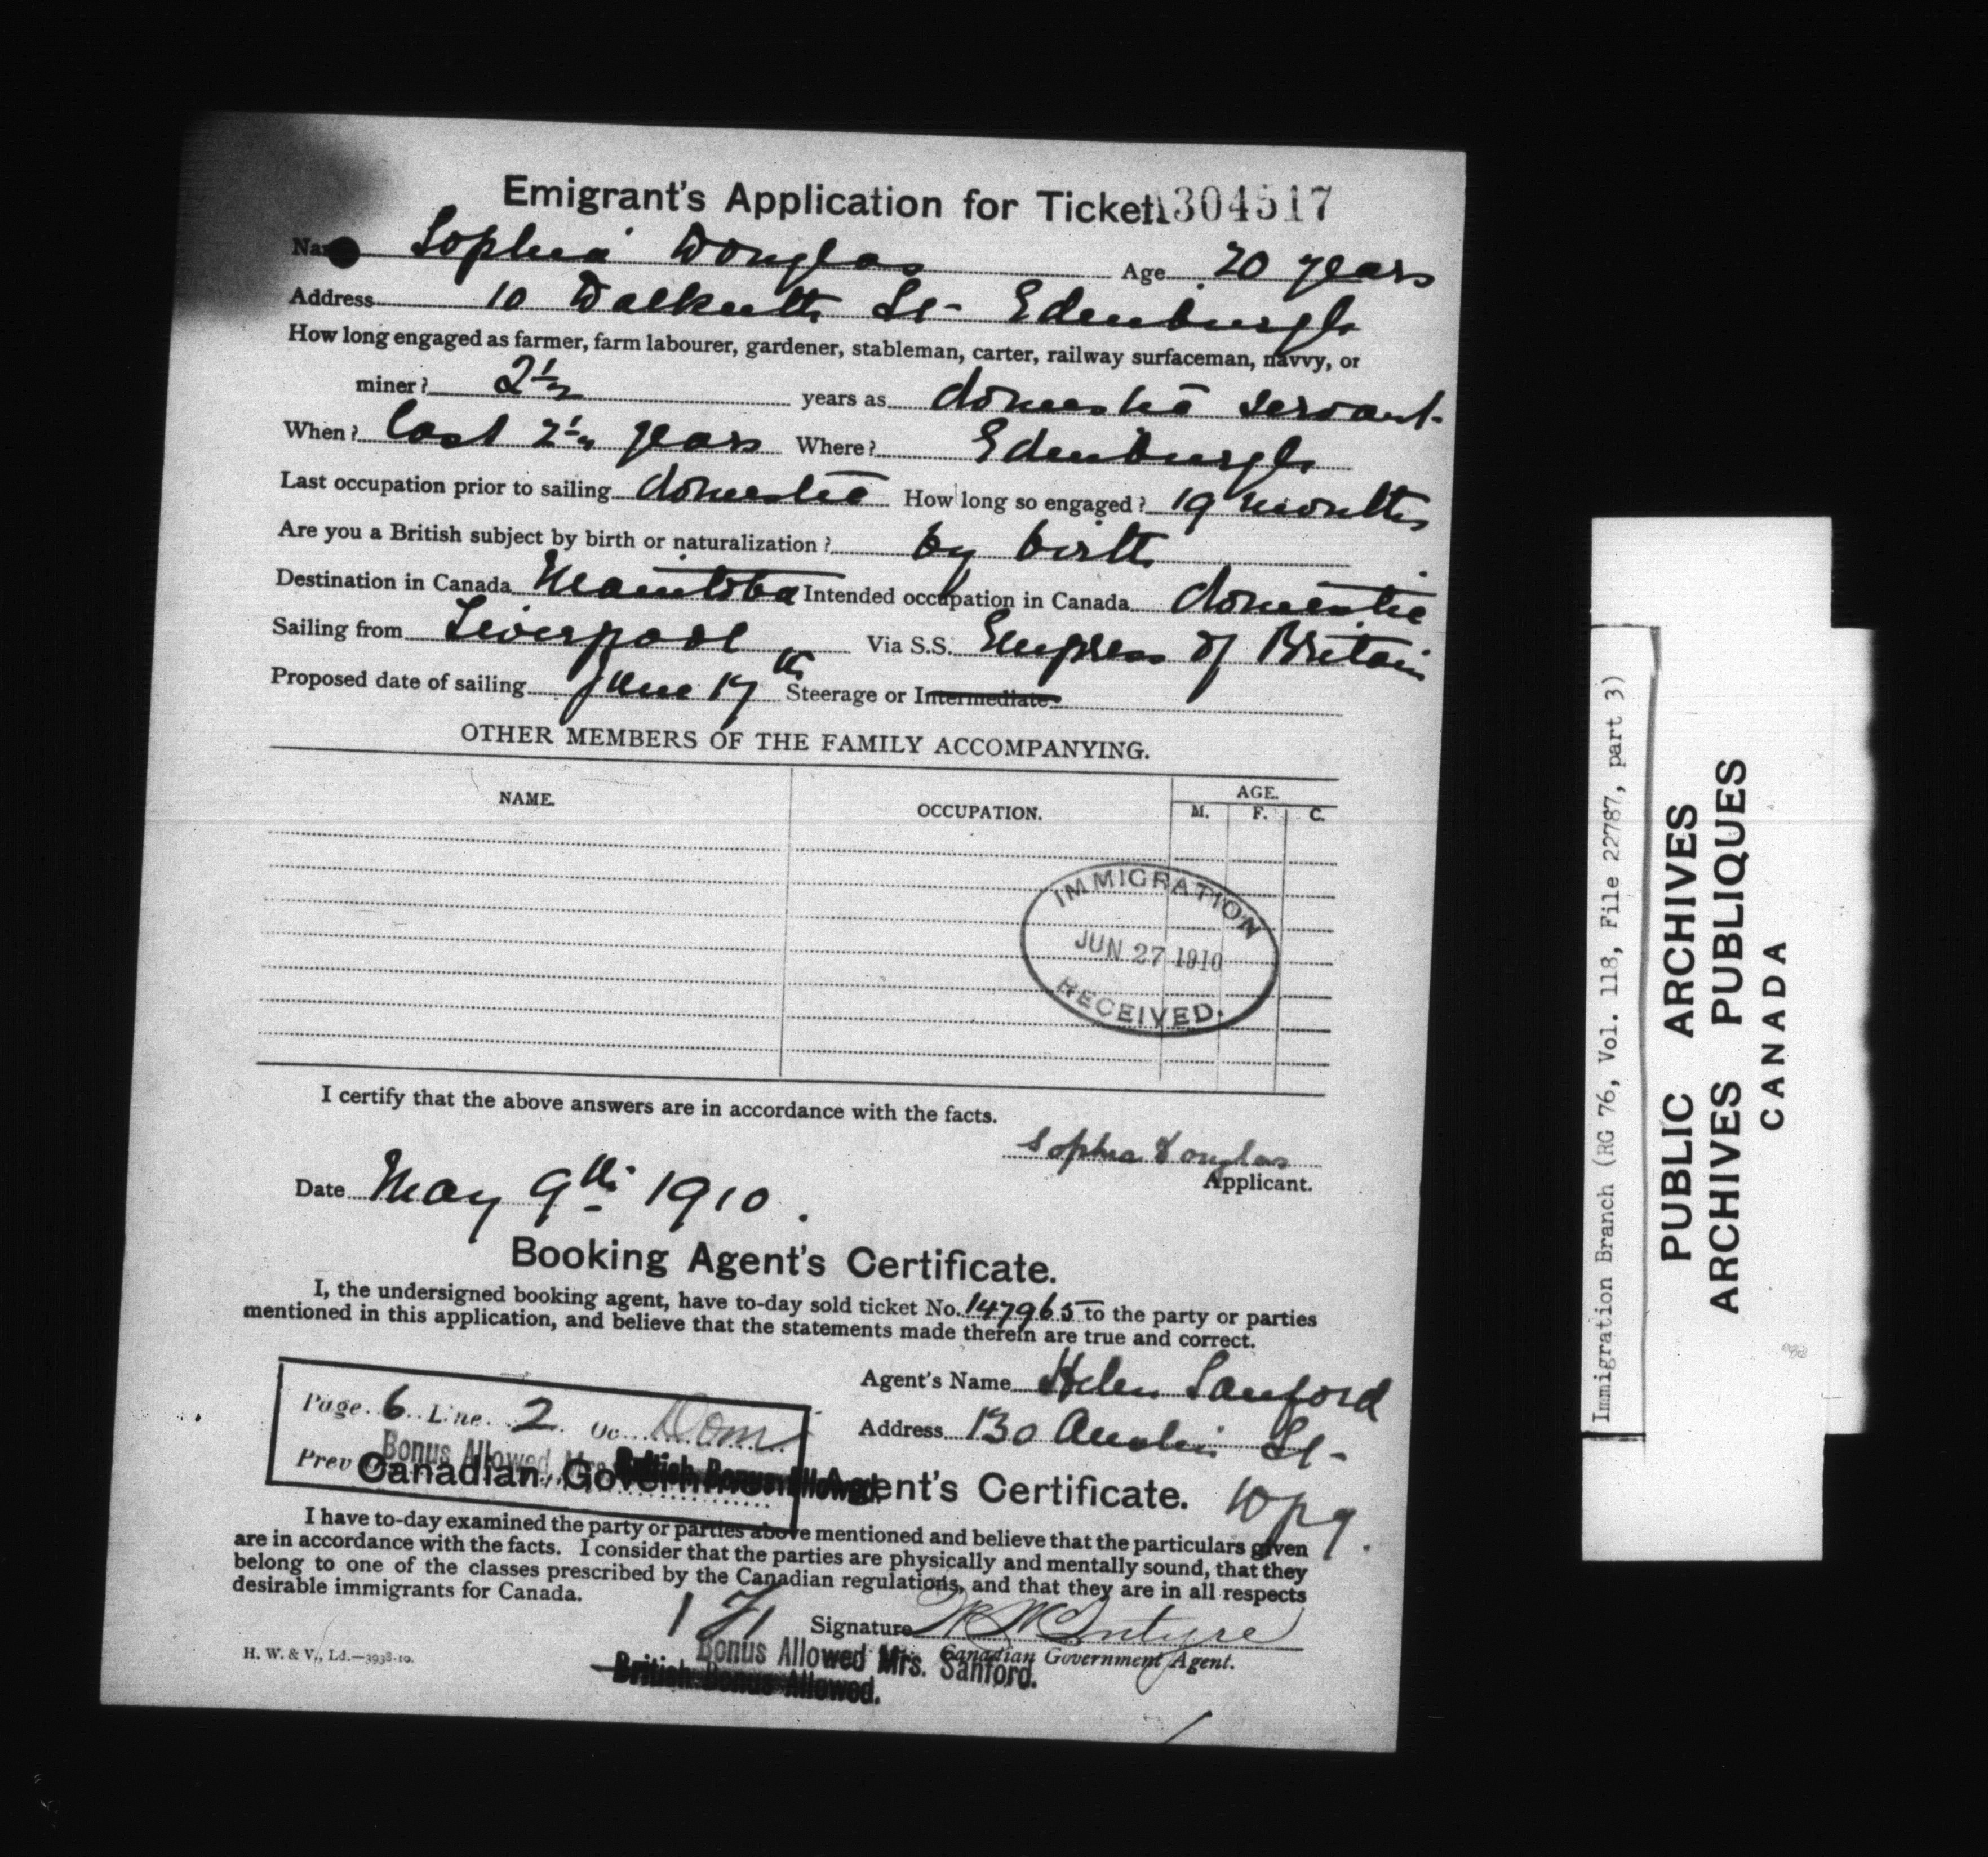 Emigrant's Application for Ticket. 1304517
Name Sophia Douglas Age 20 years
Address 10 Dalkeith St- Edenburgh
How long engaged as farmer, farm labourer, gardener, stableman, carter, railway surfaceman, navvy, or
miner? 2½ years as domestic servant-
When? last 2½ years Where? Edenburgh
Last occupation prior to sailing domestic How long so engaged? 19 months
Are you a British subject by birth or naturalization? by birth
Destination in Canada Manitoba Intended occupation in Canada domestic
Sailing from Liverpool Via S.S. Empress of Britain
Proposed date of sailing June 17th Steerage or Intermediate
OTHER MEMBERS OF THE FAMILY ACCOMPANYING.
NAME. OCCUPATION. AGE.
M. F. C.
IMMIGRATION
JUN 27 1910
RECEIVED.
I certify that the above answers are in accordance with the facts.
Sophia Douglas
Applicant.
Date May 9th 1910.
Booking Agent's Certificate.
I, the undersigned booking agent, have to-day sold ticket No. 147965 to the party or parties
mentioned in this application, and believe that the statements made therein are true and correct.
Agent's Name Helen Sanford
Address 130 Austin St-
Wpg.
Page. 6 Line. 2. Oc. Dom
Prev
Bonus Allowed Mrs.
British Bonus Allowed.
Canadian Government Agent's Certificate.
I have to-day examined the party or parties above mentioned and believe that the particulars given
are in accordance with the facts. I consider that the parties are physically and mentally sound, that they
belong to one of the classes prescribed by the Canadian regulations, and that they are in all respects
desirable immigrants for Canada.
Signature McIntyre
Canadian Government Agent.
Bonus Allowed Mrs. Sanford.
British Bonus Allowed.
H. W. & V., Ld.—3938-10.
Immigration Branch (RG 76, Vol. 118, File 22787, part 3)
PUBLIC ARCHIVES
ARCHIVES PUBLIQUES
CANADA